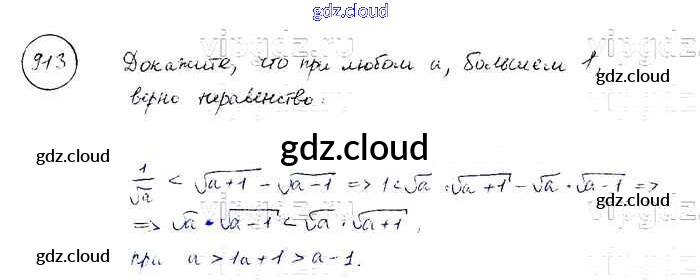 gdz.cloud
913 Докажите, что при любом a, большем 1,
gdz.cloud
вірно неравенство:
gdz.cloud
gdz.cloud
1/√a < √a+1 - √a-1 => 1 < √a · √a+1 - √a · √a-1 =>
=> √a · √a-1 < √a · √a+1,
gdz.cloud
gdz.cloud
при a > 1 a+1 > a-1.